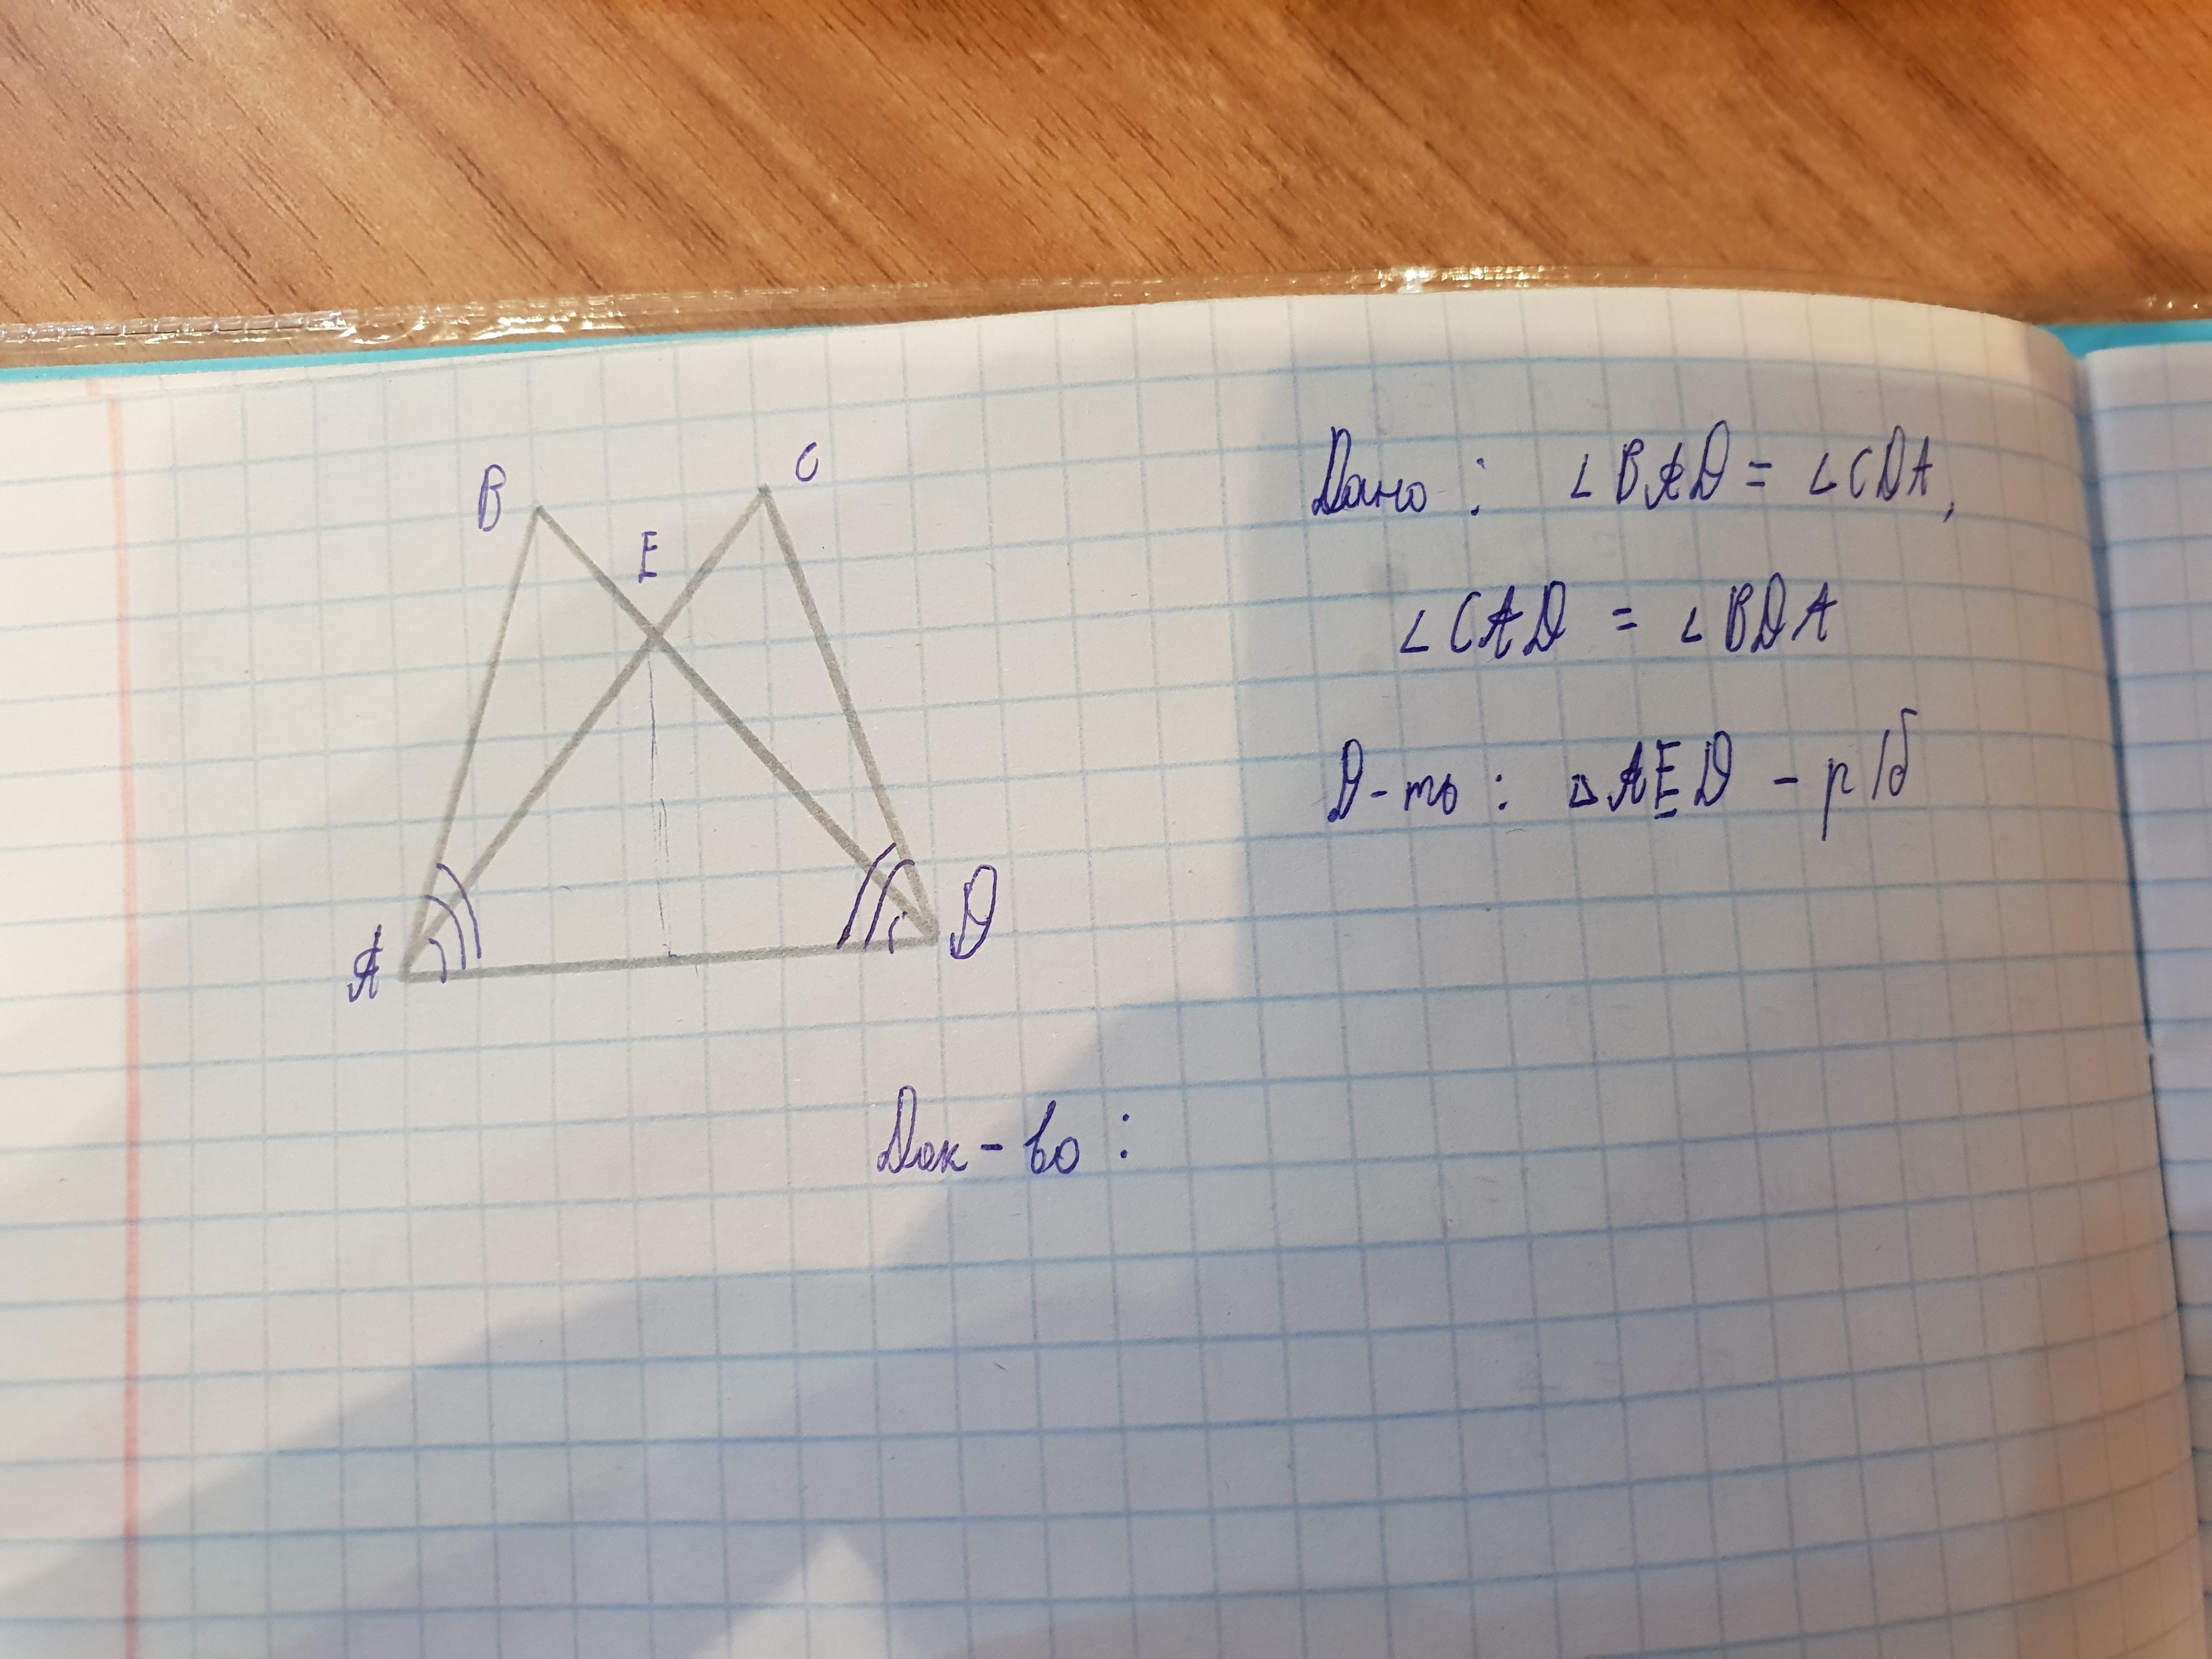 B C
E
A D
Дано : ∠BAD = ∠CDA,
∠CAD = ∠BDA
Д-ть : △AED - р/б
Док-во :